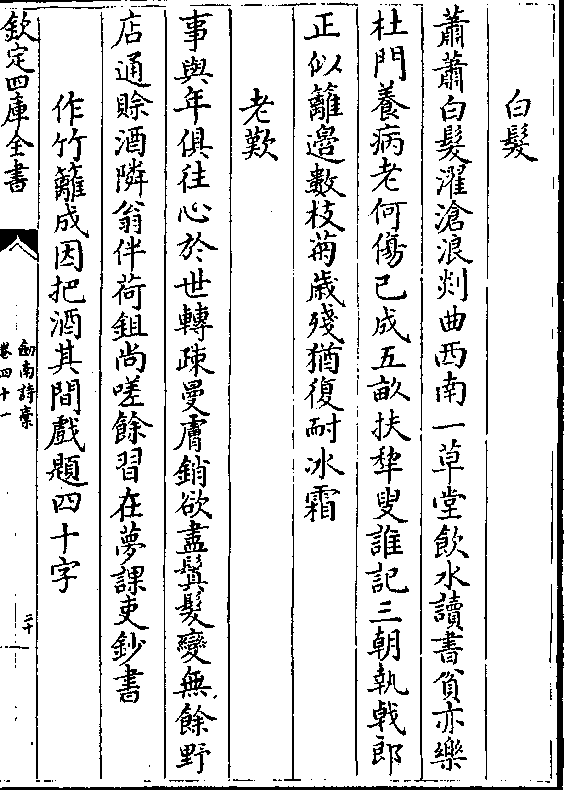 白髮
蕭蕭白髮濯滄浪剡曲西南一草堂飲水讀書貧亦樂
杜門養病老何傷已成五畝扶犂叟誰記三朝執戟郎
正似籬邊數枝菊歲殘猶復耐冰霜
老歎
事與年俱往心於世轉疎曼膚銷欲盡鬒髮變無餘野
店通賒酒隣翁伴荷鉏尚嗟餘習在夢課吏鈔書
作竹籬成因把酒其間戲題四十字
欽定四庫全書
劒南詩藁
卷四十一
二十